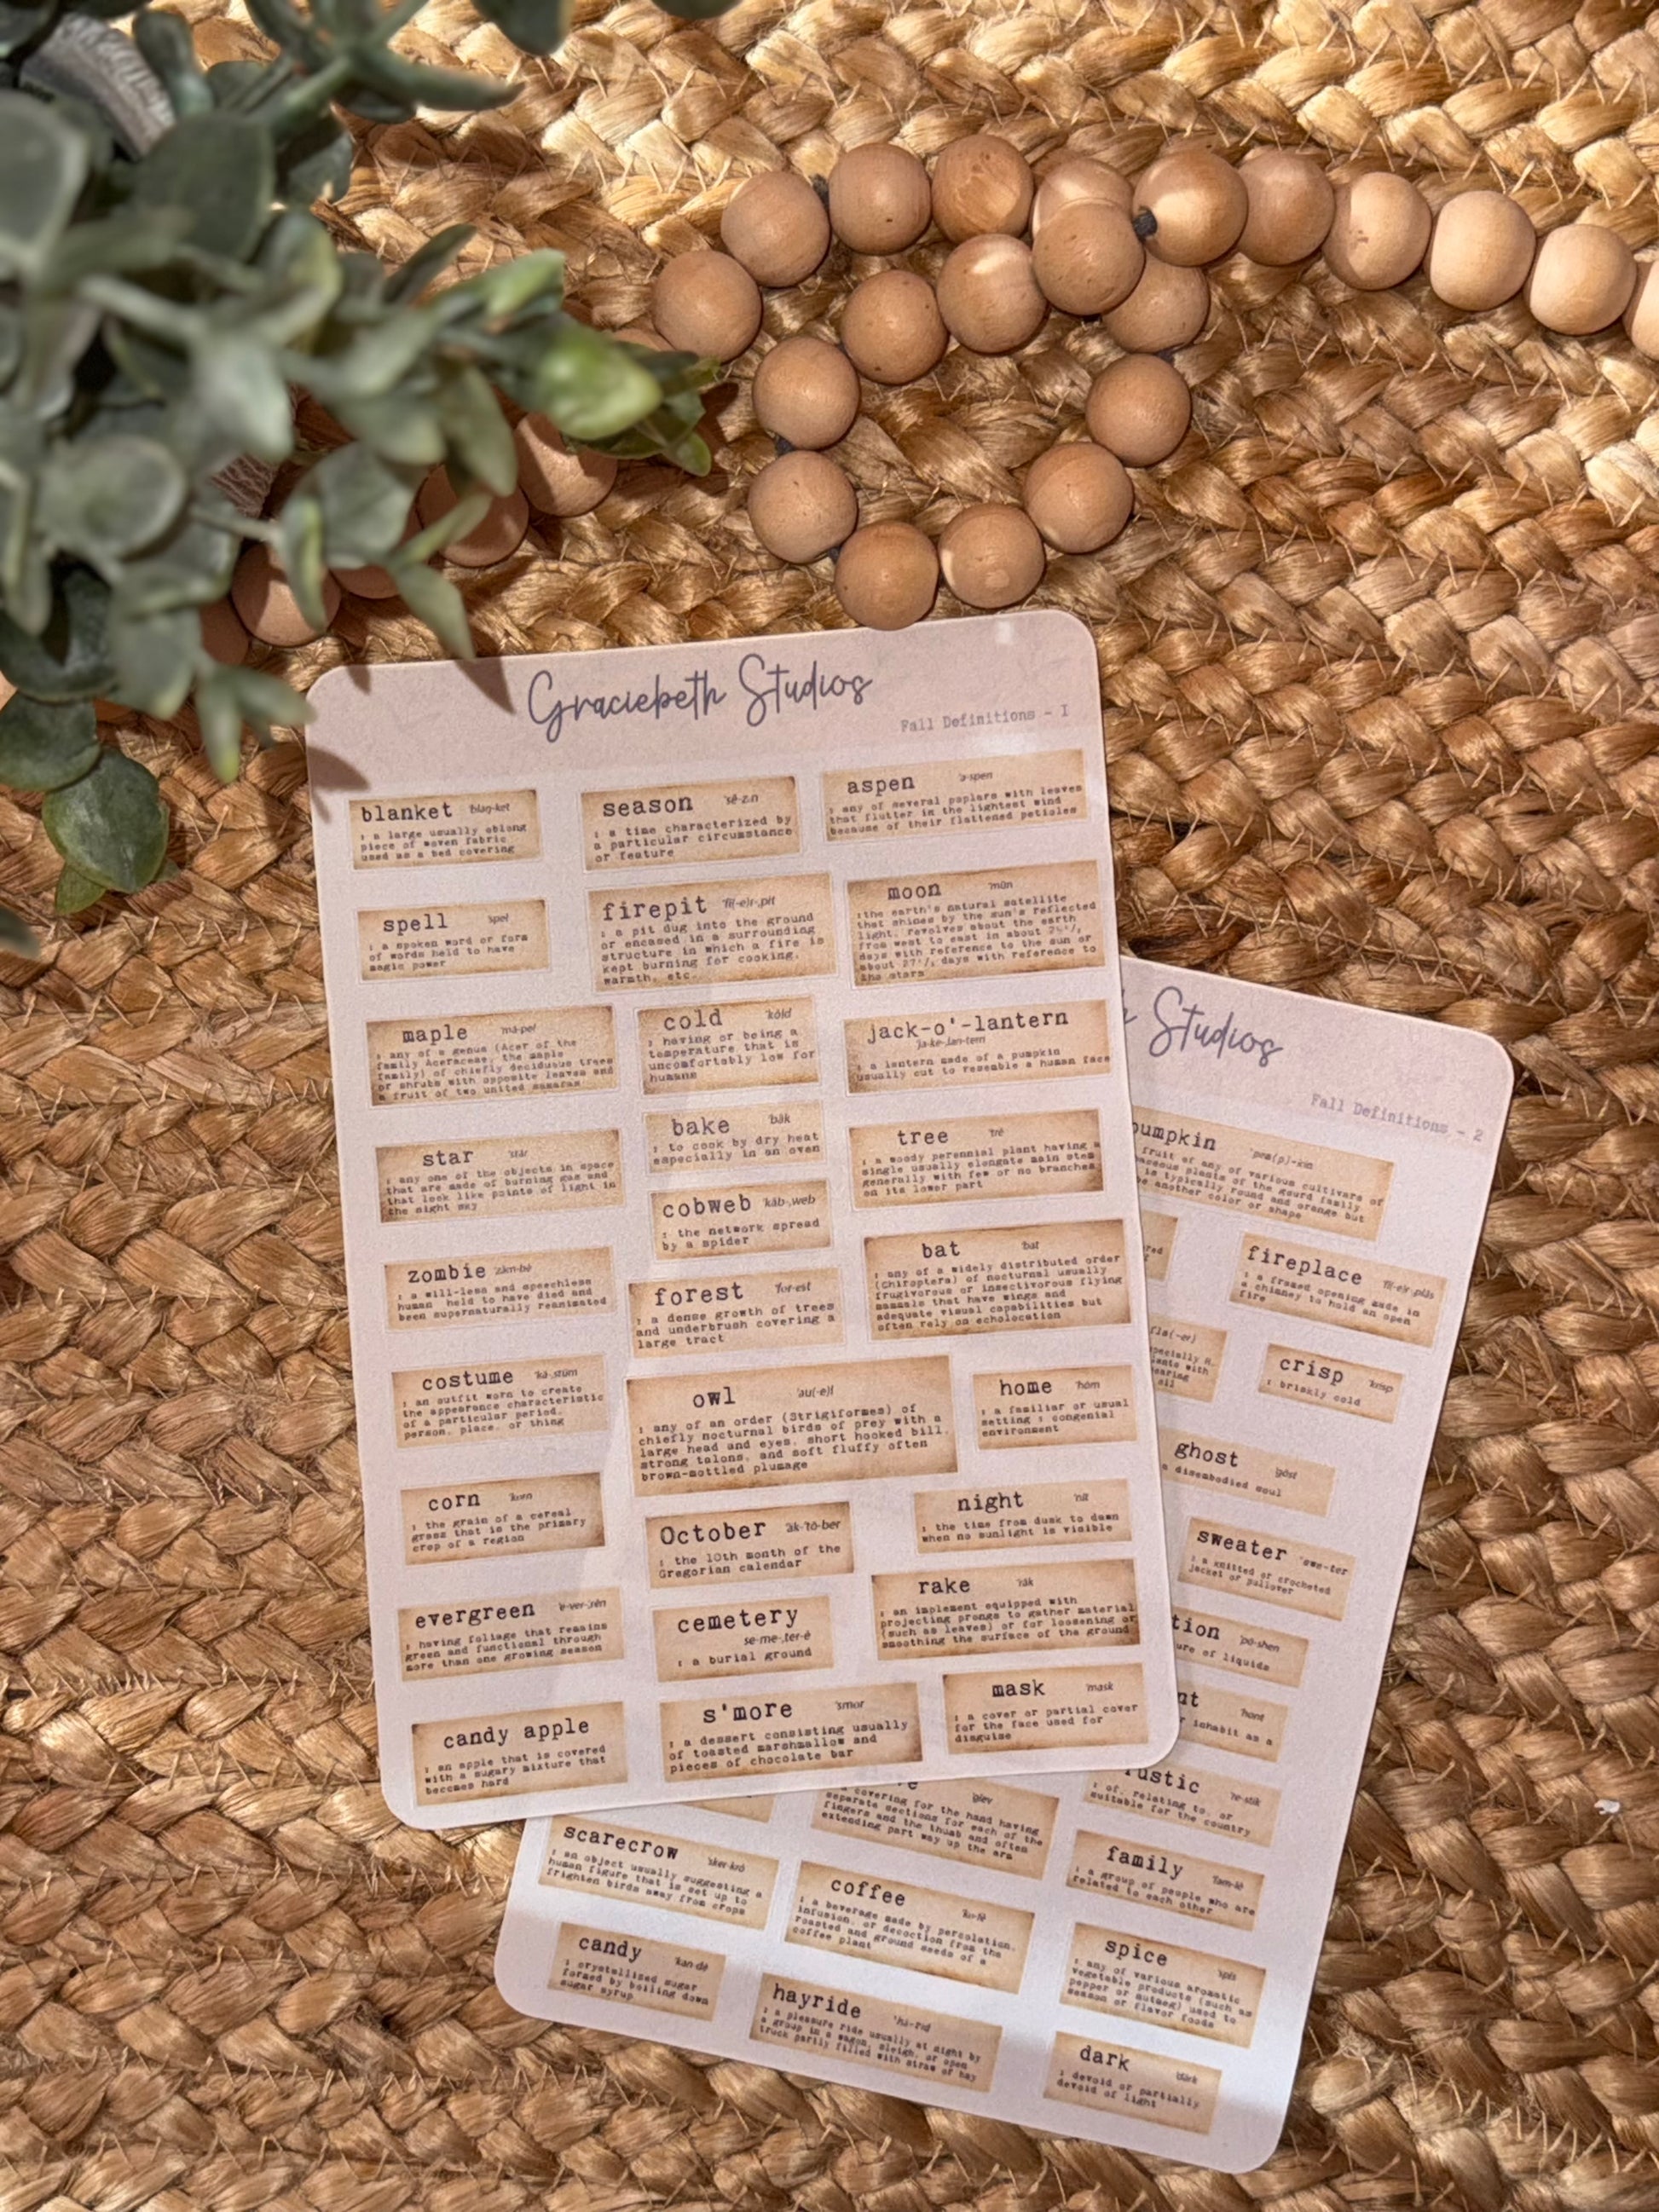 Graciebeth Studios
Fall Definitions - 1
blanket 'blaŋ-kət
: a large usually oblong
piece of woven fabric
used as a bed covering
season 'sē-zᵊn
: a time characterized by
a particular circumstance
or feature
aspen 'a-spən
: any of several poplars with leaves
that flutter in the lightest wind
because of their flattened petioles
spell 'spel
: a spoken word or form
of words held to have
magic power
firepit 'fī(-ə)r-ˌpit
: a pit dug into the ground
or encased in a surrounding
structure in which a fire is
kept burning for cooking,
warmth, etc.
moon 'mün
:the earth's natural satellite
that shines by the sun's reflected
light, revolves about the earth
from west to east in about
days with reference to the sun or
about days with reference to
the stars
maple 'mā-pəl
: any of a genus (Acer of the
family Aceraceae, the maple
family) of chiefly deciduous trees
or shrubs with opposite leaves and
a fruit of two united samaras
cold 'kōld
: having or being a
temperature that is
uncomfortably low for
humans
jack-o'-lantern
'ja-kə-ˌlan-tərn
: a lantern made of a pumpkin
usually cut to resemble a human face
star 'stär
: any one of the objects in space
that are made of burning gas and
that look like points of light in
the night sky
bake 'bāk
: to cook by dry heat
especially in an oven
tree 'trē
: a woody perennial plant having a
single usually elongate main stem
generally with few or no branches
on its lower part
cobweb 'käb-ˌweb
: the network spread
by a spider
zombie 'zäm-bē
: a will-less and speechless
human held to have died and
been supernaturally reanimated
forest 'fȯr-əst
: a dense growth of trees
and underbrush covering a
large tract
bat 'bat
: any of a widely distributed order
(Chiroptera) of nocturnal usually
frugivorous or insectivorous flying
mammals that have wings and
adequate visual capabilities but
often rely on echolocation
costume 'kä-ˌstüm
: an outfit worn to create
the appearance characteristic
of a particular period,
person, place, or thing
owl 'au̇(-ə)l
: any of an order (Strigiformes) of
chiefly nocturnal birds of prey with a
large head and eyes, short hooked bill,
strong talons, and soft fluffy often
brown-mottled plumage
home 'hōm
: a familiar or usual
setting : congenial
environment
corn 'kȯrn
: the grain of a cereal
grass that is the primary
crop of a region
October äk-'tō-bər
: the 10th month of the
Gregorian calendar
night 'nīt
: the time from dusk to dawn
when no sunlight is visible
evergreen 'e-vər-ˌgrēn
: having foliage that remains
green and functional through
more than one growing season
cemetery
'se-mə-ˌter-ē
: a burial ground
rake 'rāk
: an implement equipped with
projecting prongs to gather material
(such as leaves) or for loosening or
smoothing the surface of the ground
candy apple
: an apple that is covered
with a sugary mixture that
becomes hard
s'more 'smȯr
: a dessert consisting usually
of toasted marshmallow and
pieces of chocolate bar
mask 'mask
: a cover or partial cover
for the face used for
disguise
h Studios
Fall Definitions - 2
pumpkin 'pəm(p)-kən
fruit of any of various cultivars of
aceous plants of the gourd family
is typically round and orange but
be another color or shape
fireplace 'fī(-ə)r-ˌplās
: a framed opening made in
a chimney to hold an open
fire
crisp 'krisp
: briskly cold
ghost 'gōst
a disembodied soul
sweater 'swe-tər
: a knitted or crocheted
jacket or pullover
tion 'pō-shən
ure of liquids
nt 'hȯnt
r inhabit as a
rustic 'rə-stik
: of, relating to, or
suitable for the country
'gləv
covering for the hand having
separate sections for each of the
fingers and the thumb and often
extending part way up the arm
family 'fam-lē
: a group of people who are
related to each other
scarecrow 'sker-ˌkrō
: an object usually suggesting a
human figure that is set up to
frighten birds away from crops
coffee 'kȯ-fē
: a beverage made by percolation,
infusion, or decoction from the
roasted and ground seeds of a
coffee plant
spice 'spīs
: any of various aromatic
vegetable products (such as
pepper or nutmeg) used to
season or flavor foods
candy 'kan-dē
: crystallized sugar
formed by boiling down
sugar syrup
hayride 'hā-ˌrīd
: a pleasure ride usually at night by
a group in a wagon, sleigh, or open
truck partly filled with straw or hay
dark 'därk
: devoid or partially
devoid of light